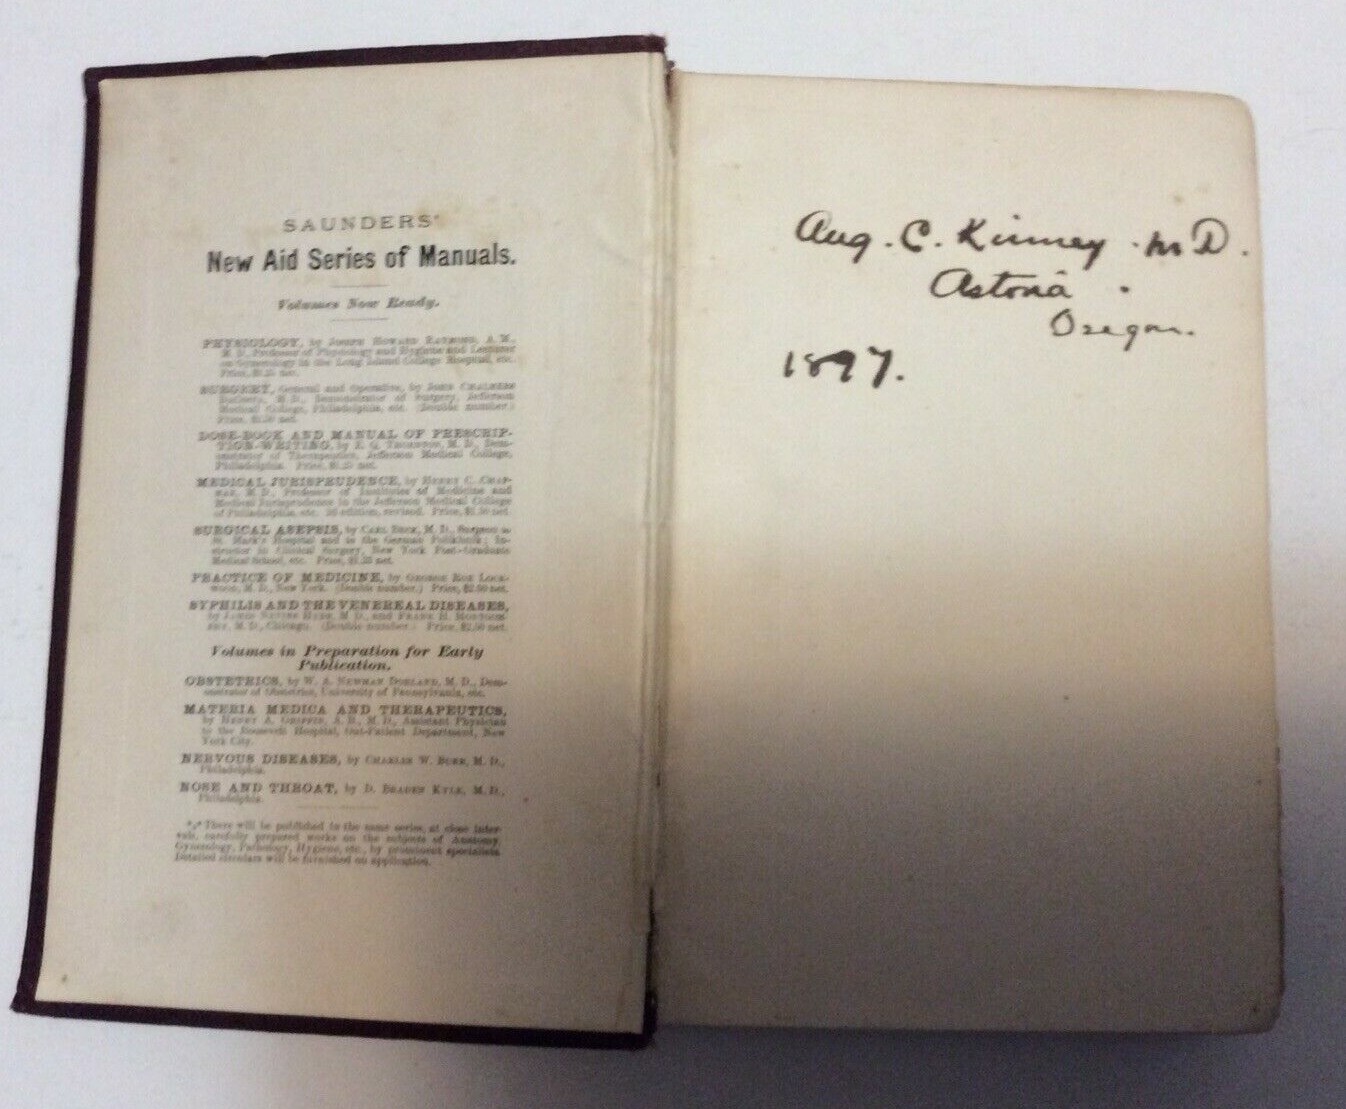 SAUNDERS'
New Aid Series of Manuals.
Volumes Now Ready.
PHYSIOLOGY, by Joseph Howard Raymond, A. M.,
M. D., Professor of Physiology and Hygiene and Lecturer
on Gynecology in the Long Island College Hospital, etc.
Price, $1.25 net.
SURGERY, General and Operative, by John Chalmers
DaCosta, M. D., Demonstrator of Surgery, Jefferson
Medical College, Philadelphia, etc. (Double number.)
Price, $2.50 net.
DOSE-BOOK AND MANUAL OF PRESCRIP-
TION-WRITING, by E. Q. Thornton, M. D., Dem-
onstrator of Therapeutics, Jefferson Medical College,
Philadelphia. Price, $1.25 net.
MEDICAL JURISPRUDENCE, by Henry C. Chap-
man, M. D., Professor of Institutes of Medicine and
Medical Jurisprudence in the Jefferson Medical College
of Philadelphia, etc. 2d edition, revised. Price, $1.50 net.
SURGICAL ASEPSIS, by Carl Beck, M. D., Surgeon to
St. Mark's Hospital and to the German Poliklinik; In-
structor in Clinical Surgery, New York Post-Graduate
Medical School, etc. Price, $1.25 net.
PRACTICE OF MEDICINE, by George Roe Lock-
wood, M. D., New York. (Double number.) Price, $2.50 net.
SYPHILIS AND THE VENEREAL DISEASES,
by James Nevins Hyde, M. D., and Frank H. Montgom-
ery, M. D., Chicago. (Double number.) Price, $2.50 net.
Volumes in Preparation for Early
Publication.
OBSTETRICS, by W. A. Newman Dorland, M. D., Dem-
onstrator of Obstetrics, University of Pennsylvania, etc.
MATERIA MEDICA AND THERAPEUTICS,
by Henry A. Griffin, A. B., M. D., Assistant Physician
to the Roosevelt Hospital, Out-Patient Department, New
York City.
NERVOUS DISEASES, by Charles W. Burr, M. D.,
Philadelphia.
NOSE AND THROAT, by D. Braden Kyle, M. D.,
Philadelphia.
*** There will be published in the same series, at close inter-
vals, carefully prepared works on the subjects of Anatomy,
Gynecology, Pathology, Hygiene, etc., by prominent specialists.
Detailed circulars will be furnished on application.
Aug. C. Kinney. M D.
Astoria.
Oregon.
1897.